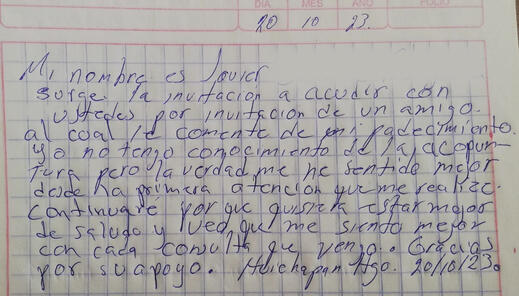 DIA MES AÑO FOLIO
20 10 23.
Mi nombre es Javier
surge la invitacion a acudir con
ustedes por invitacion de un amigo.
al coal le comente de mi padecimiento.
yo no tengo conocimiento de la acopun-
tura pero la verdad me he sentido mejor
desde la primera atencion que me realizé.
continuaré por que quisiera estar mejor
de salud y veo que me siento mejor
con cada consulta que vengo. Gracias
por su apoyo. Huichapan Hgo. 20/10/23.